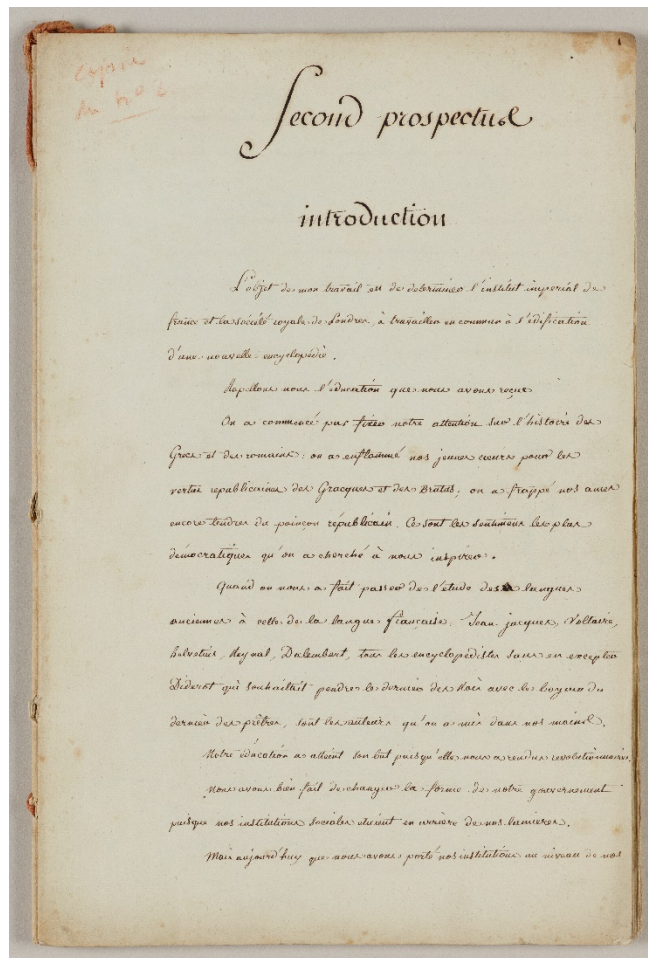 copie
du n°
Second prospectus
introduction
L'objet de mon travail est de déterminer l'institut impérial de
france et la société royale de Londres, à travailler en commun à l'édification
d'une nouvelle encyclopédie.
Rapellons nous l'éducation que nous avons reçue
On a commencé par fixer notre attention sur l'histoire des
Grecs et des romains: on a enflammé nos jeunes cœurs pour les
vertus republicaines des Gracques et des Brutus; on a frappé nos ames
encore tendres du poinçon républicain. Ce sont les sentimens les plus
démocratiques qu'on a cherché à nous inspirer.
Quand on nous a fait passer de l'étude des langues
anciennes à celle de la langue française, Jean jacques, Voltaire,
helvetius, Reynal, Dalembert, tous les encyclopédistes sans en excepter
Diderot qui souhaitait pendre le dernier des Rois avec les boyaux du
dernier des prêtres, sont les auteurs qu'on a mis dans nos mains.
Notre éducation a atteint son but puisqu'elle nous a rendus revolutionnaires.
Nous avons bien fait de changer la forme de notre gouvernement
puisque nos institutions sociales etaient en arriere de nos lumieres.
Mais aujourd'huy que nous avons porté nos institutions au niveau de nos